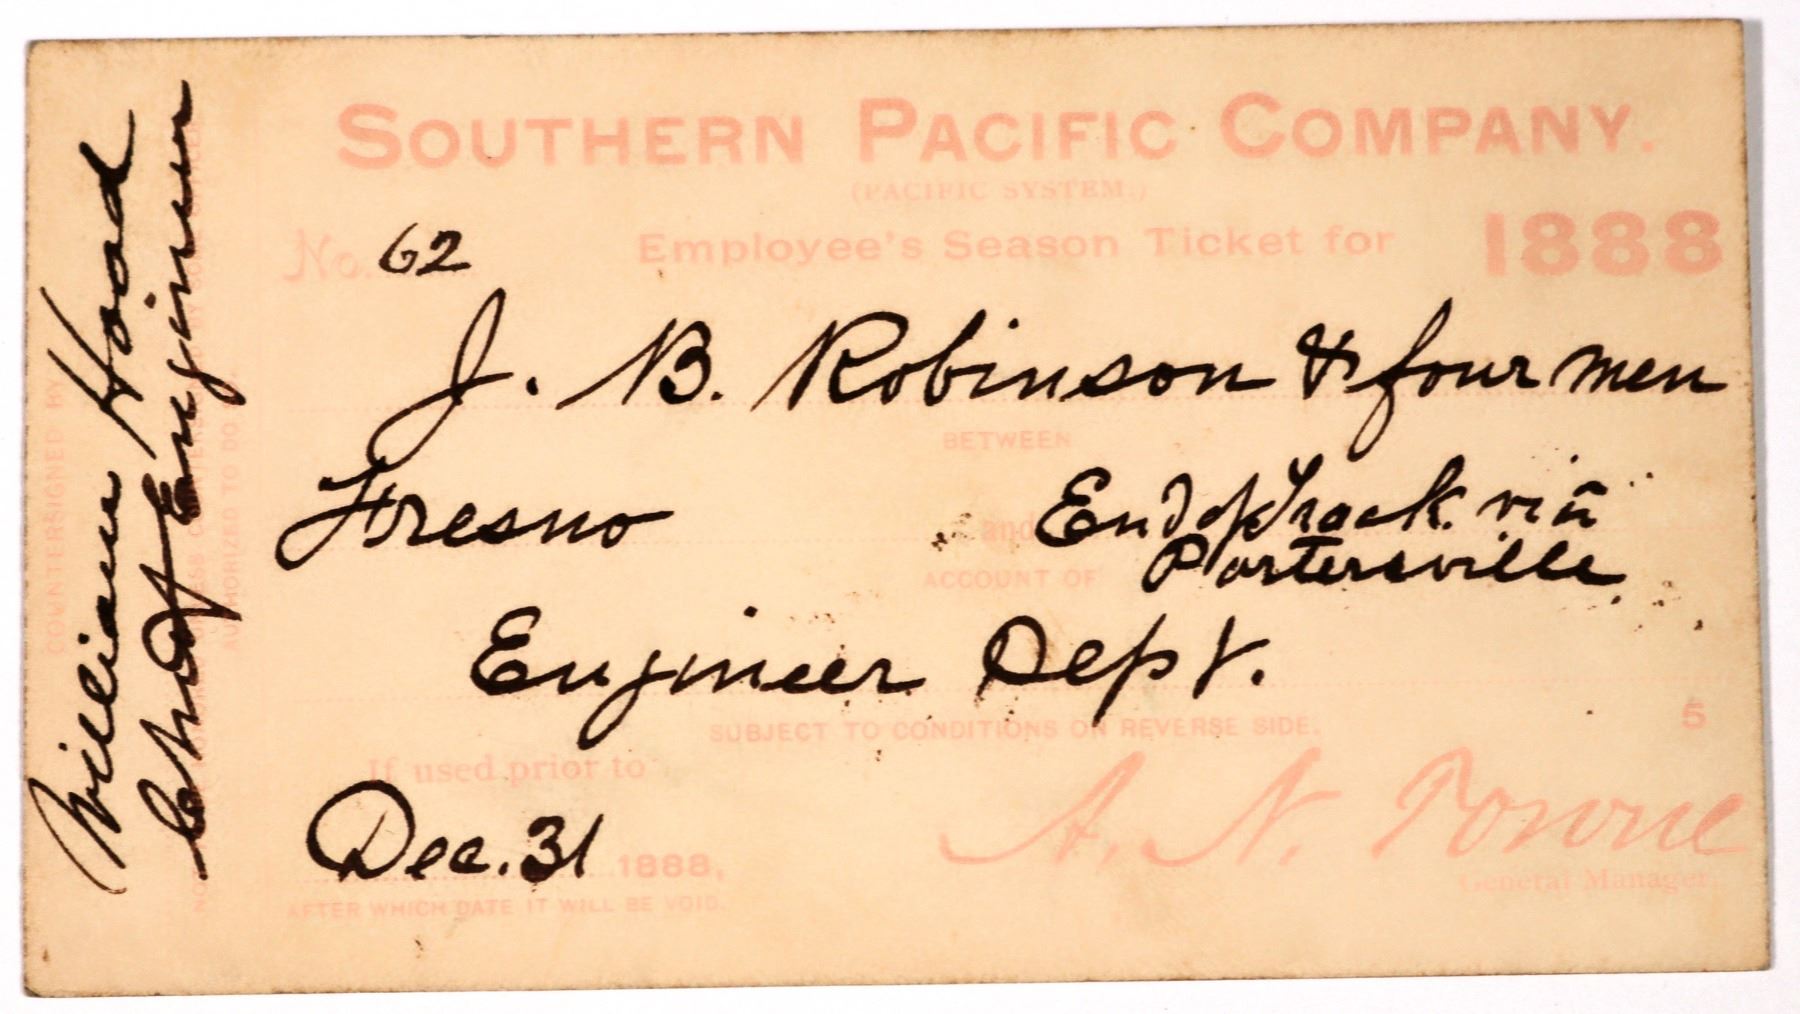 SOUTHERN PACIFIC COMPANY.
(PACIFIC SYSTEM.)
No. 62 Employee's Season Ticket for 1888
J. B. Robinson & four men
BETWEEN
Fresno and End of Track via
Portersville
ACCOUNT OF
Engineer Dept.
SUBJECT TO CONDITIONS ON REVERSE SIDE.
5
If used prior to
Dec. 31 1888,
AFTER WHICH DATE IT WILL BE VOID.
A. N. Towne
General Manager.
COUNTERSIGNED BY
William Hood
Chief Engineer
AUTHORIZED TO DO